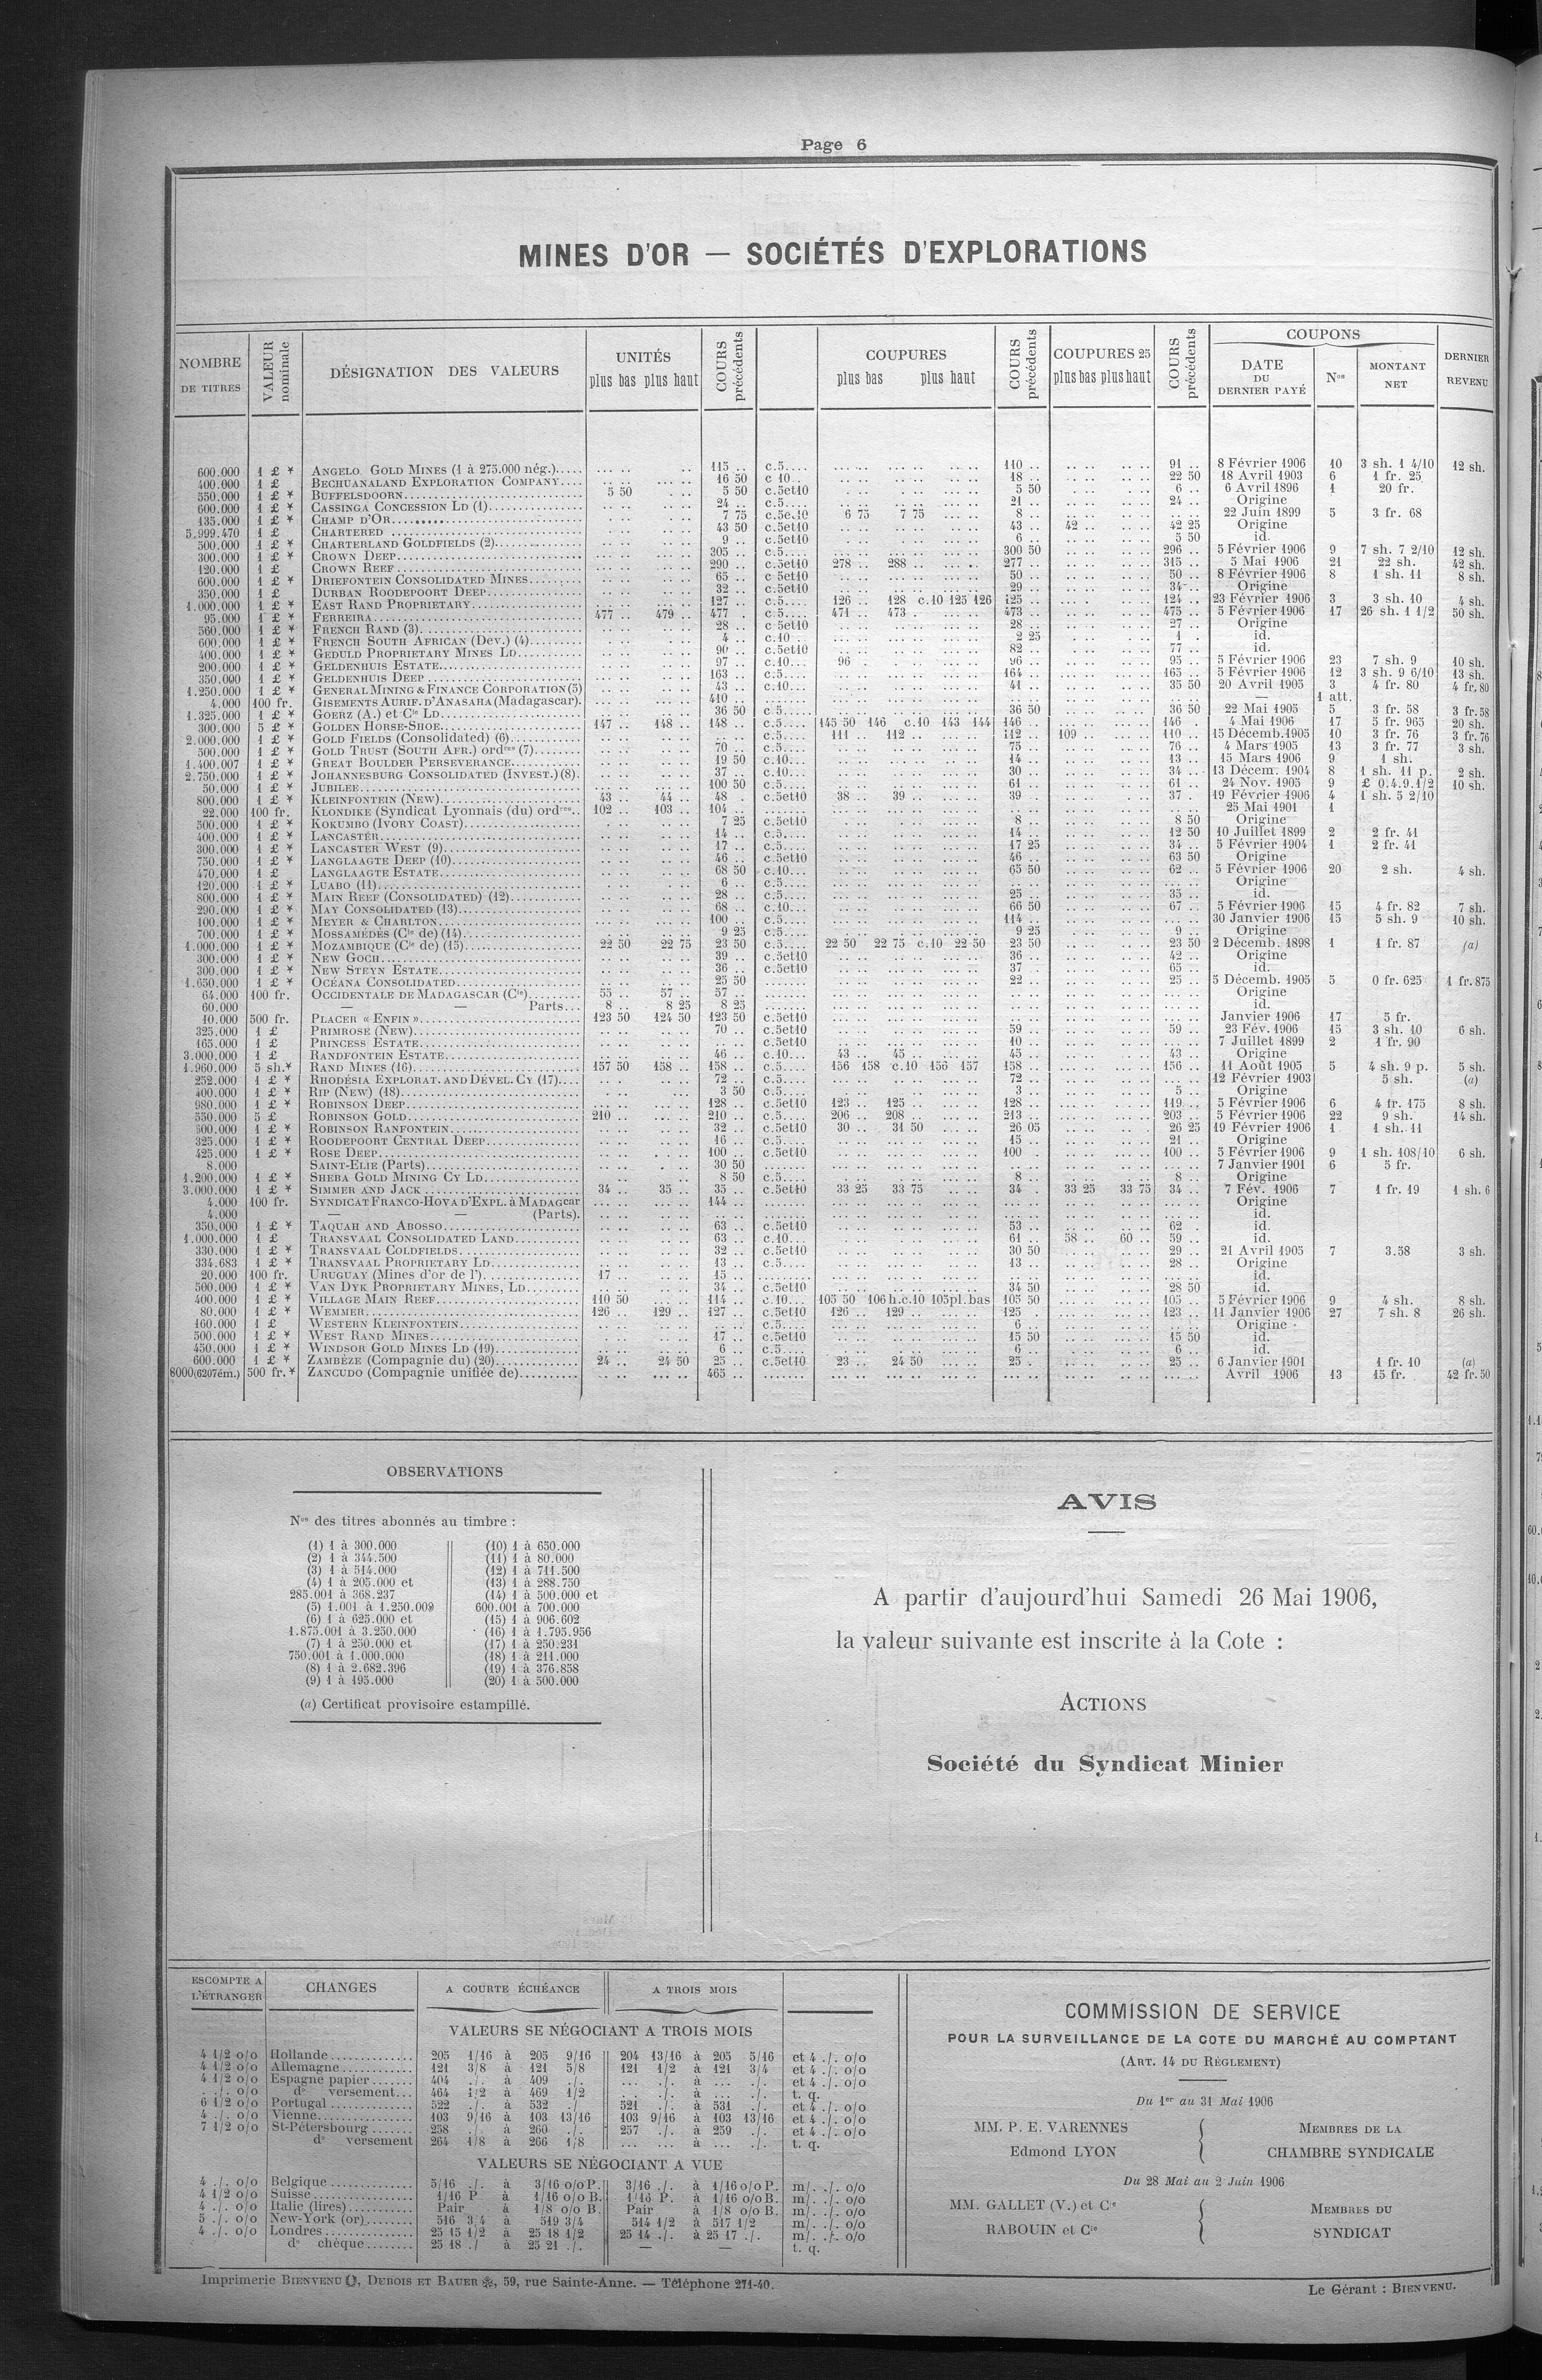 Page 6
MINES D'OR — SOCIÉTÉS D'EXPLORATIONS
NOMBRE DE TITRES | VALEUR nominale | DÉSIGNATION DES VALEURS | UNITÉS plus bas plus haut | COURS précédents | COUPURES plus bas plus haut | COURS précédents | COUPURES 25 plus bas plus haut | COURS précédents | COUPONS DATE DU DERNIER PAYÉ | Nos | MONTANT NET | DERNIER REVENU
600.000 1 £ * ANGELO GOLD MINES (1 à 275.000 nég.)..... 115 .. c.5.... 110 .. 91 .. 8 Février 1906 10 3 sh. 1 4/10 12 sh.
400.000 1 £ BECHUANALAND EXPLORATION COMPANY.... 16 50 c 10.. 18 .. 22 50 18 Avril 1903 6 1 fr. 25
550.000 1 £ * BUFFELSDOORN 5 50 5 50 c.5et10 5 50 6 .. 6 Avril 1896 1 20 fr.
600.000 1 £ * CASSINGA CONCESSION LD (1) 24 .. c.5.... 21 .. 24 .. Origine
135.000 1 £ * CHAMP D'OR 7 75 c.5et10 6 75 7 75 8 .. 22 Juin 1899 5 3 fr. 68
5.999.470 1 £ CHARTERED 43 50 c.5et10 43 .. 42 .. 42 25 Origine
500.000 1 £ * CHARTERLAND GOLDFIELDS (2) 9 .. c.5et10 6 .. 5 50 id.
300.000 1 £ * CROWN DEEP 305 .. c.5.... 300 50 296 .. 5 Février 1906 9 7 sh. 7 2/10 12 sh.
120.000 1 £ CROWN REEF 290 .. c.5et10 278 .. 288 .. 277 .. 315 .. 5 Mai 1906 21 22 sh. 42 sh.
600.000 1 £ * DRIEFONTEIN CONSOLIDATED MINES 65 .. c 5et10 50 .. 50 .. 8 Février 1906 8 1 sh. 11 8 sh.
350.000 1 £ DURBAN ROODEPOORT DEEP 32 .. c.5et10 29 .. 34 .. Origine
1.000.000 1 £ * EAST RAND PROPRIETARY 127 .. c.5.... 126 .. 128 c.10 125 126 125 .. 124 .. 23 Février 1906 3 3 sh. 10 4 sh.
95.000 1 £ * FERREIRA 477 .. 479 .. 477 .. c.5.... 471 .. 473 .. 473 .. 475 .. 5 Février 1906 17 26 sh. 1 1/2 50 sh.
560.000 1 £ * FRENCH RAND (3) 28 .. c 5et10 28 .. 27 .. Origine
600.000 1 £ * FRENCH SOUTH AFRICAN (Dev.) (4) 4 .. c.10 .. 2 25 1 . id.
400.000 1 £ * GEDULD PROPRIETARY MINES LD 90 .. c.5et10 82 .. 77 .. id.
200.000 1 £ * GELDENHUIS ESTATE 97 .. c.10... 96 . 96 .. 95 .. 5 Février 1906 23 7 sh. 9 10 sh.
350.000 1 £ * GELDENHUIS DEEP 163 .. c.5.... 164 .. 165 .. 5 Février 1906 12 3 sh. 9 6/10 13 sh.
1.250.000 1 £ * GENERAL MINING & FINANCE CORPORATION (5) 43 .. c.10... 41 .. 35 50 20 Avril 1905 3 4 fr. 80 4 fr. 80
4.000 100 fr. GISEMENTS AURIF. D'ANASAHA (Madagascar). 410 .. — 1 att.
1.325.000 1 £ * GOERZ (A.) et Cie LD 36 50 c 5.... 36 50 36 50 22 Mai 1905 5 3 fr. 58 3 fr. 58
300.000 5 £ * GOLDEN HORSE-SHOE 147 .. 148 .. 148 .. c.5.... 145 50 146 c.10 143 144 146 . 146 . 4 Mai 1906 17 5 fr. 965 20 sh.
2.000.000 1 £ * GOLD FIELDS (Consolidated) (6) c.5.... 111 112 .. 112 .. 109 110 .. 15 Décemb. 1905 10 3 fr. 76 3 fr. 76
500.000 1 £ * GOLD TRUST (SOUTH AFR.) ordres (7) 70 .. c.5.... 75 .. 76 .. 4 Mars 1905 13 3 fr. 77 3 sh.
1.400.007 1 £ * GREAT BOULDER PERSEVERANCE 19 50 c.10... 14 .. 13 .. 15 Mars 1906 9 1 sh.
2.750.000 1 £ * JOHANNESBURG CONSOLIDATED (INVEST.) (8). 37 .. c.10... 30 .. 34 .. 13 Décem. 1904 8 1 sh. 11 p. 2 sh.
50.000 1 £ * JUBILEE 100 50 c.5.... 61 .. 61 .. 24 Nov. 1905 9 £ 0.4.9.1/2 10 sh.
800.000 1 £ * KLEINFONTEIN (NEW) 43 .. 44 .. 48 . c.5et10 38 .. 39 .. 39 .. 37 . 19 Février 1906 4 1 sh. 5 2/10
22.000 100 fr. KLONDIKE (Syndicat Lyonnais (du) ordres.. 102 .. 103 .. 104 .. 25 Mai 1901 1
500.000 1 £ * KOKUMBO (IVORY COAST) 7 25 c.5et10 8 .. 8 50 Origine
400.000 1 £ * LANCASTER 14 .. c.5.... 14 .. 12 50 10 Juillet 1899 2 2 fr. 41
300.000 1 £ * LANCASTER WEST (9) 17 .. c.5.... 17 25 34 .. 5 Février 1904 1 2 fr. 41
750.000 1 £ * LANGLAAGTE DEEP (10) 46 .. c.5et10 46 .. 63 50 Origine
470.000 1 £ LANGLAAGTE ESTATE 68 50 c.10... 65 50 62 .. 5 Février 1906 20 2 sh. 4 sh.
120.000 1 £ * LUABO (11) 6 .. c.5.... Origine
800.000 1 £ * MAIN REEF (CONSOLIDATED) (12) 28 .. c.5.... 25 .. 35 .. id.
290.000 1 £ * MAY CONSOLIDATED (13) 68 .. c.10... 66 50 67 .. 5 Février 1906 15 4 fr. 82 7 sh.
100.000 1 £ * MEYER & CHARLTON 100 .. c.5.... 114 .. 30 Janvier 1906 15 5 sh. 9 10 sh.
700.000 1 £ * MOSSAMÉDÈS (Cie de) (14) 9 25 c.5.... 9 25 9 .. Origine
1.000.000 1 £ * MOZAMBIQUE (Cie de) (15) 22 50 22 75 23 50 c.5.... 22 50 22 75 c.10 22 50 23 50 23 50 2 Décemb. 1898 1 1 fr. 87 (a)
300.000 1 £ * NEW GOCH 39 .. c.5et10 36 .. 42 .. Origine
300.000 1 £ * NEW STEYN ESTATE 36 .. c.5et10 37 65 .. id.
1.650.000 1 £ * OCÉANA CONSOLIDATED 25 50 22 .. 25 .. 5 Décemb. 1905 5 0 fr. 625 1 fr. 875
64.000 100 fr. OCCIDENTALE DE MADAGASCAR (Cie) 55 .. 57 .. 57 .. Origine
60.000 — — Parts... 8 .. 8 25 8 25 id.
10.000 500 fr. PLACER « ENFIN » 123 50 124 50 123 50 c.5et10 Janvier 1906 17 5 fr.
325.000 1 £ PRIMROSE (NEW) 70 .. c.5et10 59 .. 59 .. 23 Fév. 1906 15 3 sh. 10 6 sh.
165.000 1 £ PRINCESS ESTATE c.5et10 10 .. 7 Juillet 1899 2 1 fr. 90
3.000.000 1 £ RANDFONTEIN ESTATE 46 .. c.10... 43 .. 45 .. 45 .. 43 .. Origine
1.960.000 5 sh.* RAND MINES (16) 157 50 158 .. 158 .. c.5.... 156 158 c.10 156 157 158 .. 156 .. 11 Août 1905 5 4 sh. 9 p. 5 sh.
252.000 1 £ * RHODÉSIA EXPLORAT. AND DÉVEL. CY (17).... 72 .. c.5.... 72 .. 12 Février 1903 5 sh. (a)
400.000 1 £ * RIP (NEW) (18) 3 50 c.5.... 3 .. 5 .. Origine
980.000 1 £ * ROBINSON DEEP 128 .. c.5et10 123 .. 125 .. 128 .. 119 .. 5 Février 1906 6 4 fr. 175 8 sh.
550.000 5 £ ROBINSON GOLD 210 .. 210 .. c.5.... 206 .. 208 .. 213 .. 203 .. 5 Février 1906 22 9 sh. 14 sh.
500.000 1 £ * ROBINSON RANFONTEIN 32 .. c.5et10 30 .. 31 50 26 05 26 25 19 Février 1906 1 1 sh. 11
325.000 1 £ * ROODEPOORT CENTRAL DEEP 16 .. c.5.... 15 .. 21 .. Origine
425.000 1 £ * ROSE DEEP 100 .. c.5et10 100 . 100 .. 5 Février 1906 9 1 sh. 108/10 6 sh.
8.000 SAINT-ELIE (Parts) 30 50 7 Janvier 1901 6 5 fr.
1.200.000 1 £ * SHEBA GOLD MINING CY LD 8 50 c.5.... 8 .. 8 .. Origine
3.000.000 1 £ * SIMMER AND JACK 34 .. 35 .. 35 .. c.5et10 33 25 33 75 34 . 33 25 33 75 34 .. 7 Fév. 1906 7 1 fr. 19 1 sh. 6
4.000 100 fr. SYNDICAT FRANCO-HOVA D'EXPL. à MADAGcar 144 .. Origine
4.000 — — (Parts). id.
350.000 1 £ * TAQUAH AND ABOSSO 63 .. c.5et10 53 .. 62 .. id.
1.000.000 1 £ TRANSVAAL CONSOLIDATED LAND 63 .. c.10... 61 .. 58 .. 60 .. 59 .. id.
330.000 1 £ * TRANSVAAL COLDFIELDS 32 .. c.5et10 30 50 29 .. 21 Avril 1905 7 3.58 3 sh.
334.683 1 £ * TRANSVAAL PROPRIETARY LD 13 .. c.5.... 13 .. 28 .. Origine
20.000 100 fr. URUGUAY (Mines d'or de l') 17 .. 15 .. id.
500.000 1 £ * VAN DYK PROPRIETARY MINES, LD 34 .. c.5et10 34 50 28 50 id.
400.000 1 £ * VILLAGE MAIN REEF 110 50 114 .. c.10... 105 50 106 h.c.10 105 pl. bas 105 50 105 .. 5 Février 1906 9 4 sh. 8 sh.
80.000 1 £ * WEMMER 126 .. 129 .. 127 .. c.5et10 126 .. 129 .. 125 123 .. 11 Janvier 1906 27 7 sh. 8 26 sh.
160.000 1 £ WESTERN KLEINFONTEIN c.5.... 6 .. Origine
500.000 1 £ * WEST RAND MINES 17 .. c.5et10 15 50 15 50 id.
450.000 1 £ * WINDSOR GOLD MINES LD (19) 6 .. c.5.... 6 .. 6 .. id.
600.000 1 £ * ZAMBÈZE (Compagnie du) (20) 24 .. 24 50 25 .. c.5et10 23 .. 24 50 25 . 25 .. 6 Janvier 1901 1 fr. 10 (a)
8000(6207ém.) 500 fr.* ZANCUDO (Compagnie unifiée de) 465 .. Avril 1906 13 15 fr. 42 fr. 50
OBSERVATIONS
Nos des titres abonnés au timbre :
(1) 1 à 300.000
(2) 1 à 344.500
(3) 1 à 514.000
(4) 1 à 205.000 et
285.001 à 368.237
(5) 1.001 à 1.250.000
(6) 1 à 625.000 et
1.875.001 à 3.250.000
(7) 1 à 250.000 et
750.001 à 1.000.000
(8) 1 à 2.682.396
(9) 1 à 195.000
(10) 1 à 650.000
(11) 1 à 80.000
(12) 1 à 711.500
(13) 1 à 288.750
(14) 1 à 500.000 et
600.001 à 700.000
(15) 1 à 906.602
(16) 1 à 1.795.956
(17) 1 à 250.231
(18) 1 à 211.000
(19) 1 à 376.858
(20) 1 à 500.000
(a) Certificat provisoire estampillé.
AVIS
A partir d'aujourd'hui Samedi 26 Mai 1906,
la valeur suivante est inscrite à la Cote :
ACTIONS
Société du Syndicat Minier
ESCOMPTE A L'ÉTRANGER | CHANGES | A COURTE ÉCHÉANCE | A TROIS MOIS
VALEURS SE NÉGOCIANT A TROIS MOIS
4 1/2 o/o Hollande 205 1/16 à 205 9/16 204 13/16 à 205 5/16 et 4 ./. o/o
4 1/2 o/o Allemagne 121 3/8 à 121 5/8 121 1/2 à 121 3/4 et 4 ./. o/o
4 1/2 o/o Espagne papier 404 ./. à 409 ./. ... ./. à ... ./. et 4 ./. o/o
. ./. o/o do versement... 464 1/2 à 469 1/2 ... ./. à ... ./. t. q.
6 1/2 o/o Portugal 522 ./. à 532 ./ 521 ./. à 531 ./. et 4 ./. o/o
4 ./. o/o Vienne 103 9/16 à 103 13/16 103 9/16 à 103 13/16 et 4 ./. o/o
7 1/2 o/o St-Pétersbourg 258 ./. à 260 ./. 257 ./. à 259 ./. et 4 ./. o/o
do versement 264 1/8 à 266 1/8 ... ... à ... ./. t. q.
VALEURS SE NÉGOCIANT A VUE
4 ./. o/o Belgique 5/16 ./. à 3/16 o/o P. 3/16 ./. à 1/16 o/o P. m/. ./. o/o
4 1/2 o/o Suisse 1/16 P à 1/16 o/o B. 1/16 P. à 1/16 o/o B. m/. ./. o/o
4 ./. o/o Italie (lires) Pair à 1/8 o/o B. Pair à 1/8 o/o B. m/. ./. o/o
5 ./. o/o New-York (or) 516 3/4 à 519 3/4 514 1/2 à 517 1/2 m/. ./. o/o
4 ./. o/o Londres 25 15 1/2 à 25 18 1/2 25 14 ./. à 25 17 ./. m/. ./. o/o
do chèque 25 18 ./ à 25 21 ./. — — t. q.
COMMISSION DE SERVICE
POUR LA SURVEILLANCE DE LA COTE DU MARCHÉ AU COMPTANT
(ART. 14 DU RÈGLEMENT)
Du 1er au 31 Mai 1906
MM. P. E. VARENNES
Edmond LYON
MEMBRES DE LA
CHAMBRE SYNDICALE
Du 28 Mai au 2 Juin 1906
MM. GALLET (V.) et Cie
RABOUIN et Cie
MEMBRES DU
SYNDICAT
Imprimerie BIENVENU, DEBOIS ET BAUER, 59, rue Sainte-Anne. — Téléphone 271-40.
Le Gérant : BIENVENU.